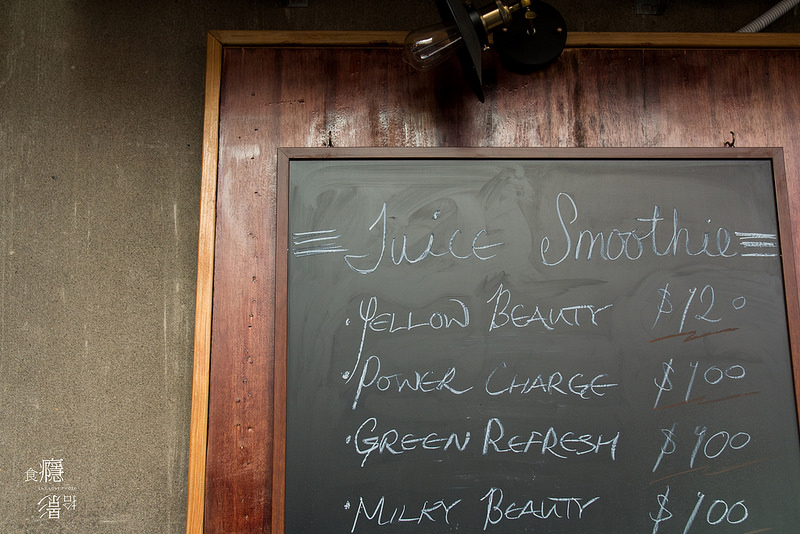 Juice Smoothie
·YELLOW BEAUTY $120
·POWER CHARGE $100
·GREEN REFRESH $100
·MILKY BEAUTY $100
食癮
拾影